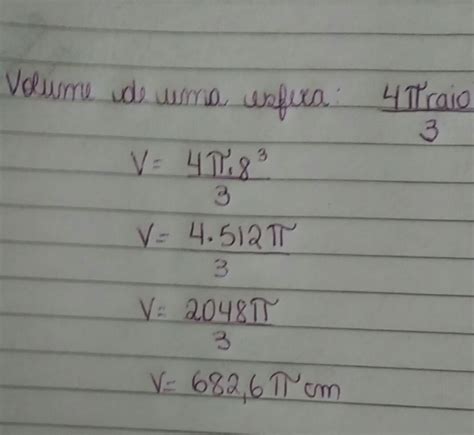 Volume de uma esfera: 4πraio/3
V= 4π.8³/3
V= 4.512π/3
V= 2048π/3
V= 682,6π cm